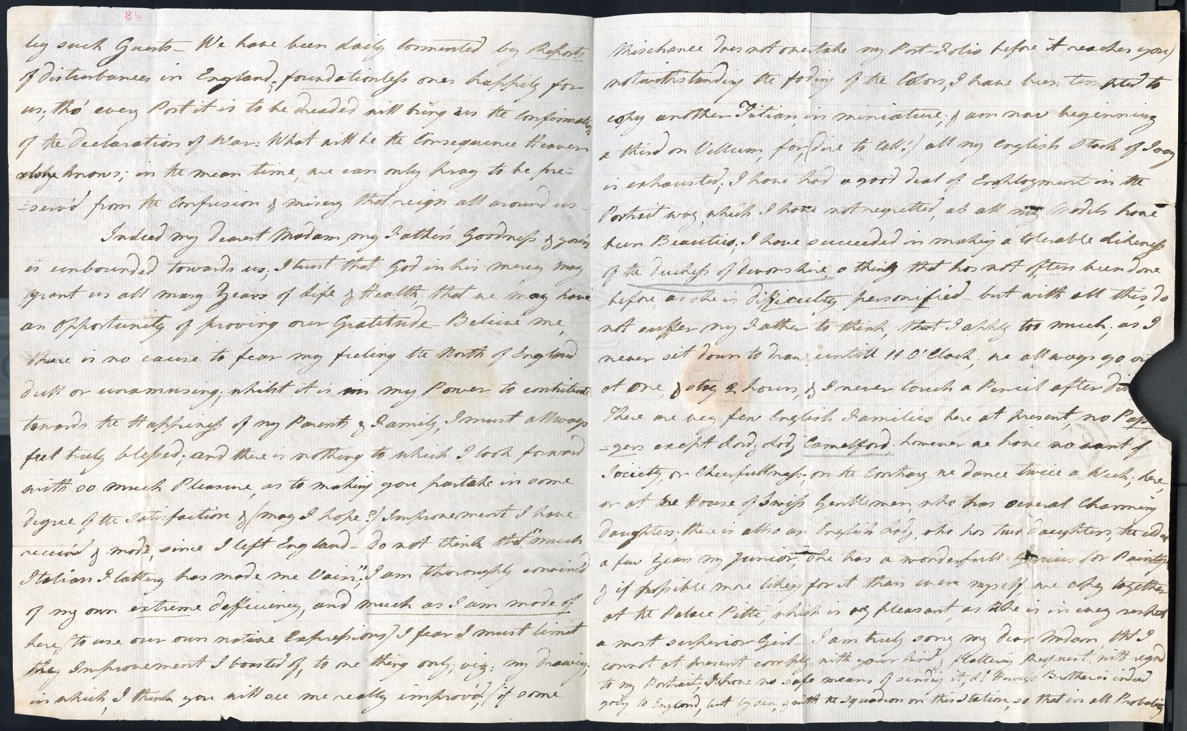 88
by such Guests - We have been daily tormented by Reports
of disturbances in England, foundationless ones happily for
us, tho' every Post it is to be dreaded will bring us the Confirmation
of the Declaration of War: What will be the Consequence Heaven
alone knows; in the mean time, we can only pray to be pre-
-serv'd from the Confusion & misery that reign all around us
Indeed my dearest Madam, my Father's Goodness & yours
is unbounded towards us, I trust that God in his mercy may
grant us all many Years of Life & Health, that we may have
an opportunity of proving our Gratitude - Believe me,
there is no cause to fear my feeling the North of England
dull or unamusing, whilst it is in my Power to contribute
towards the Happiness of my Parents & Family, I must allways
feel truly blessed, and there is nothing to which I look forward
with so much Pleasure, as to making you partake in some
degree of the Satisfaction & (may I hope?) Improvement I have
received & made, since I left England - Do not think that "much
Italian Flattery has made me Vain". I am thoroughly convinced
of my own extreme defficiency, and much as I am made of
here, (to use our own native Expressions) I fear I must limit
the Improvement I boasted of, to one thing only, viz: my drawing,
in which, I think you will see me really improv'd, if some
Mischance does not overtake my Port-Folio before it reaches you,
notwithstanding the fading of the Colors, I have been tempted to
copy another Titian, in miniature, & am now beginning
a third on Vellum, for, (dire to tell!) all my English Stock of Ivory
is exhausted; I have had a good deal of Employment in the
Portrait way, which I have not regretted, as all my Models have
been Beauties, I have succeeded in making a tolerable likeness
of the Duchess of Devonshire, a thing that has not often been done
before, as she is difficulty personified - but with all this, do
not suffer my Father to think, that I apply too much, as I
never set down to draw untill 11 O'Clock, we allways go out
at one, & stay 2 hours, & I never touch a Pencil after
There are very few English Families here at present, no Pass-
-gers except Lord, Lady Camelford, however we have no want of
Society, or Cheerfullness, on the Contrary we dance twice a Week, here,
or at the House of Swiss Gentleman, who has several Charming
daughters, there is also an English Lady, who has two daughters, the
a few Years my Junior, who has a wonderfull Genius for Painting
& if possible more liking for it than even myself, we copy together
at the Palace Pitti, which is very pleasant, as she is in every respect
a most superior Girl - I am truly sorry my dear Madam, that I
cannot at present comply with your kind & flattering Request, with regard
to my Portrait, I have no safe means of sending it, Brother is indeed
going to England, but by sea, with the Squadron on this Station, so that in all Probability